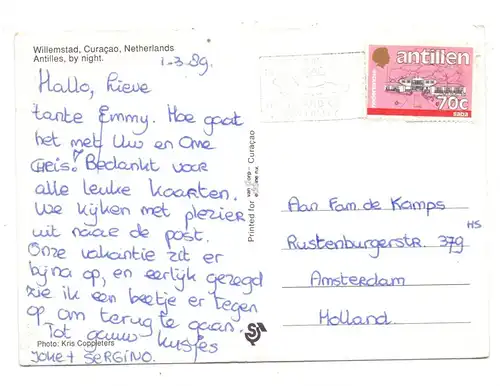 Willemstad, Curaçao, Netherlands
Antilles, by night.
1-3-89.
Hallo, Lieve
tante Emmy. Hoe gaat
het met Uw en Ome
CHRIS? Bedankt voor
alle leuke kaarten.
We kijken met plezier
uit naar de post.
Onze vakantie zit er
bijna op, en eerlijk gezegd
zie ik een beetje er tegen
op om terug te gaan.
Tot gauw kusjes
JOKE + SERGINO.
Photo: Kris Coppieters
Printed for
Curaçao
nederlandse
antillen
70c
saba
Aan Fam. de Kamps
Rustenburgerstr. 379 HS
Amsterdam
Holland.